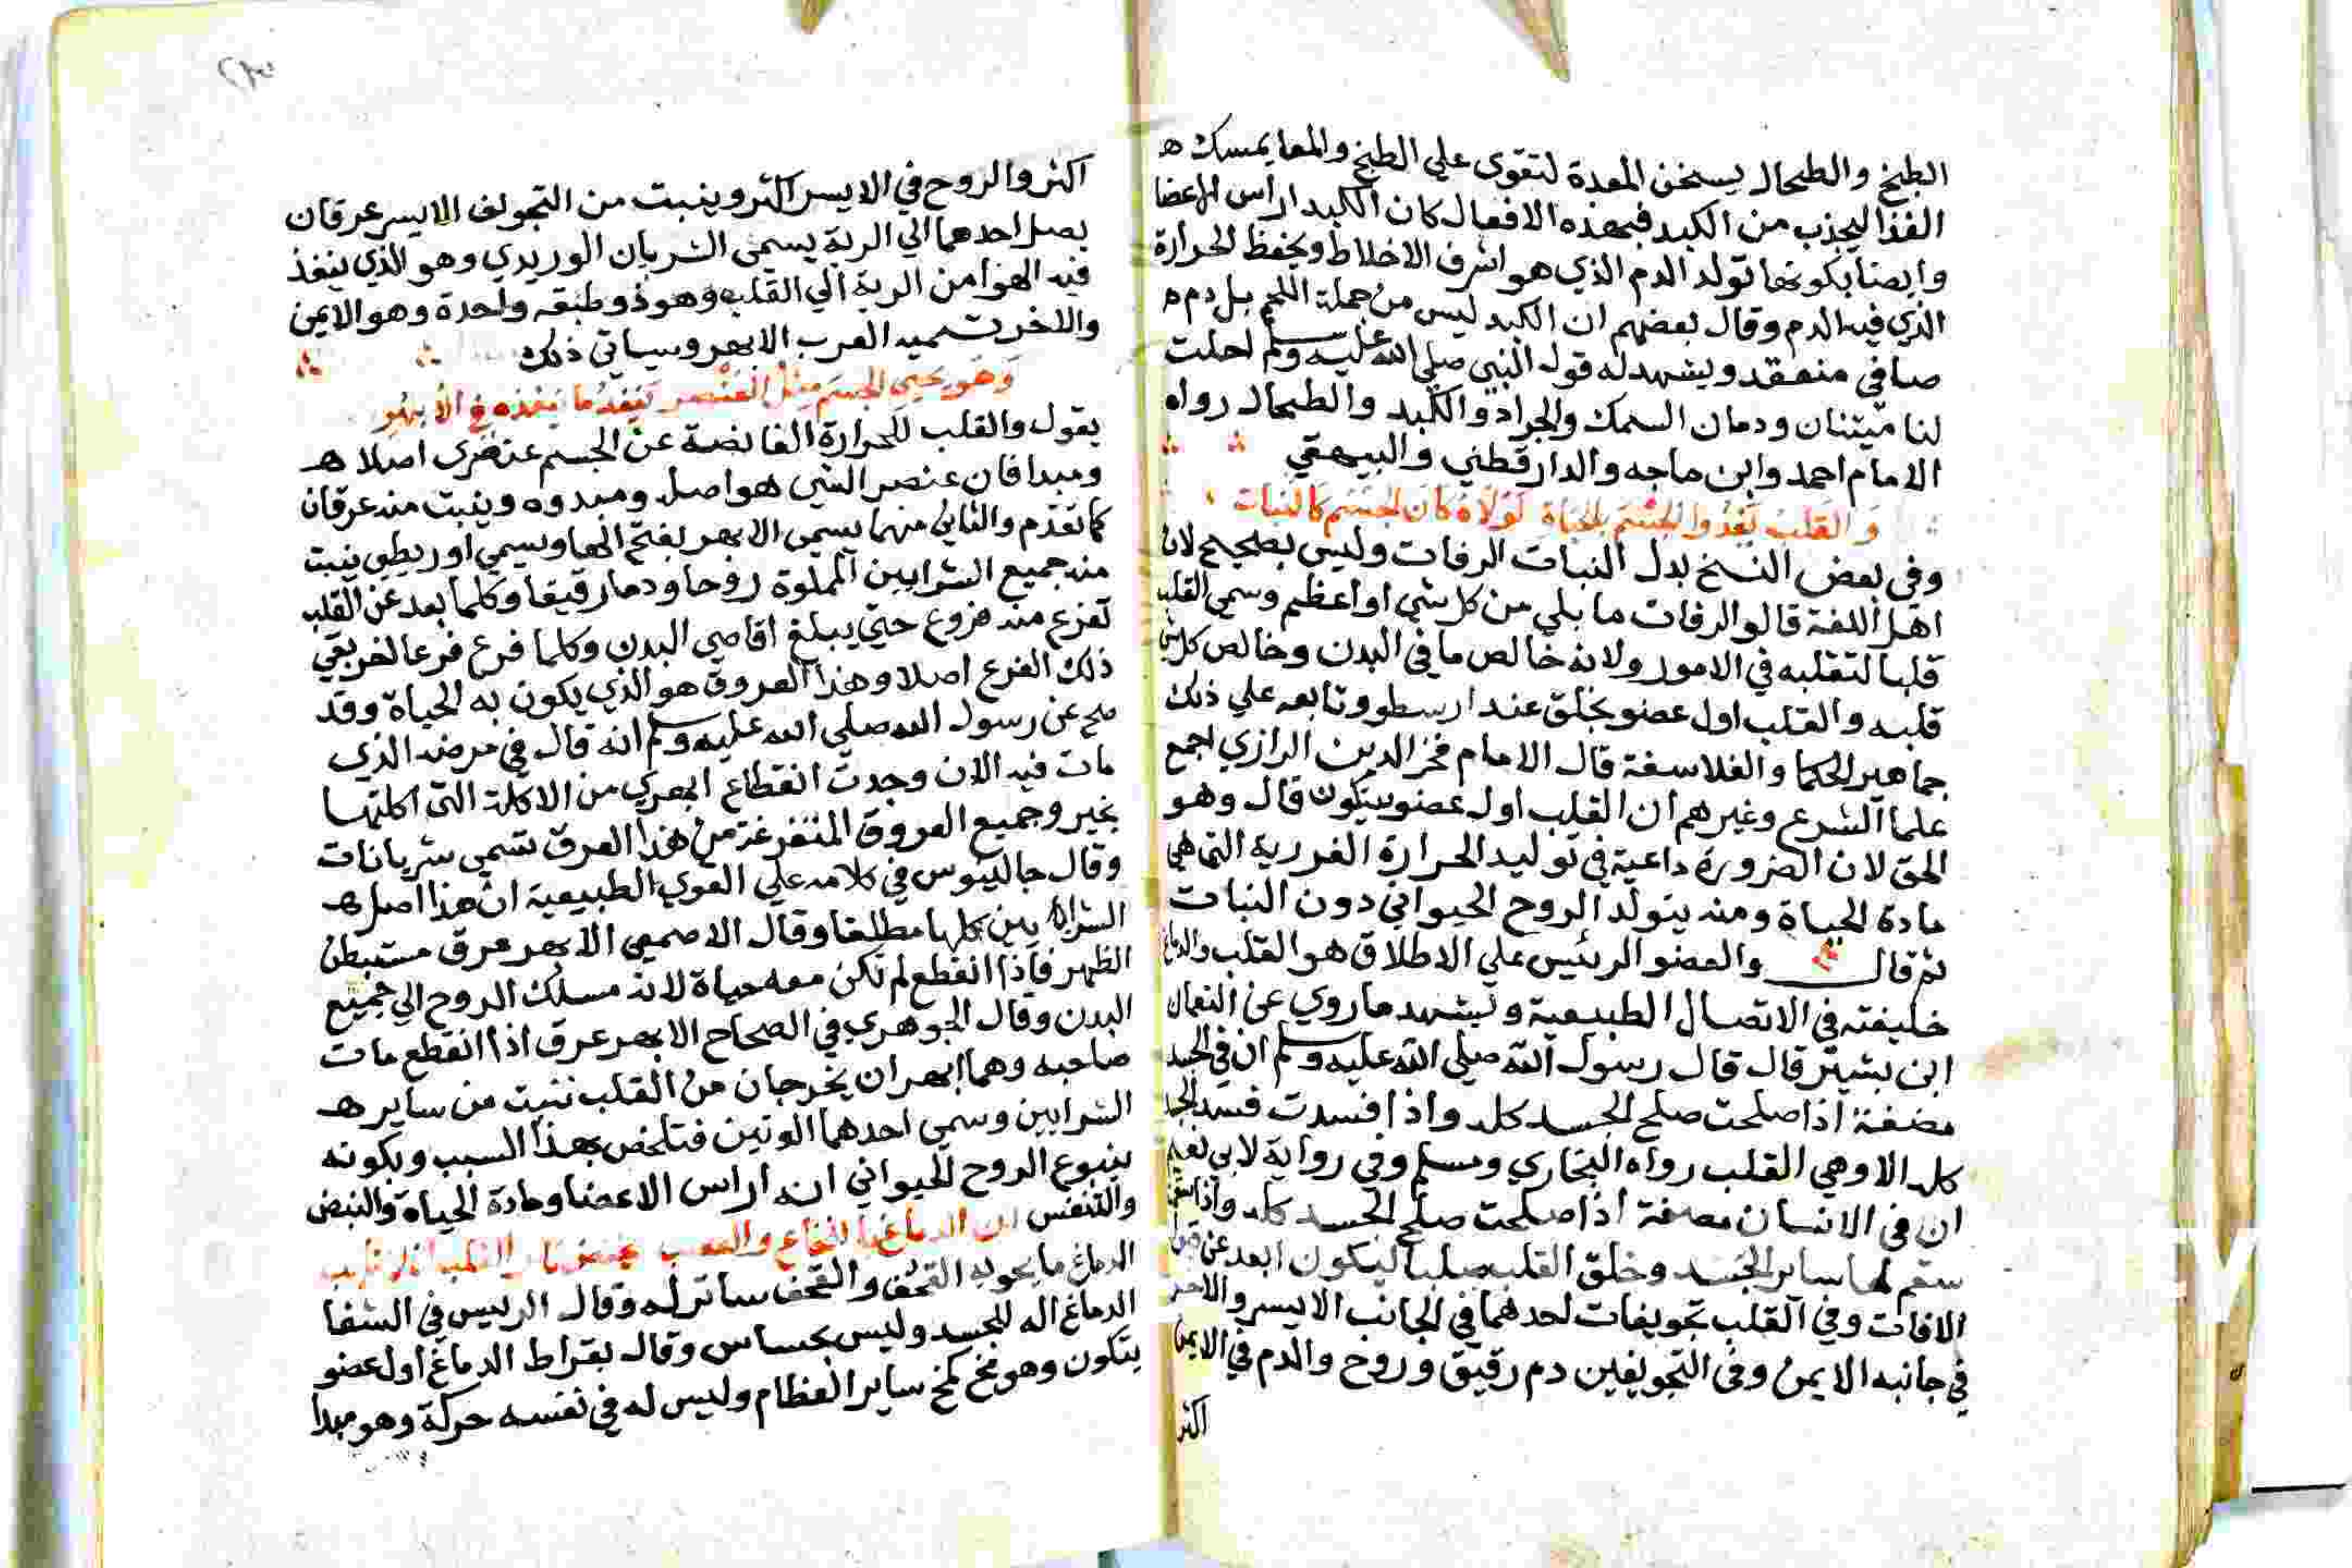 الطبخ والطحال يسخن المعدة لتقوى علي الطبخ والمعا يمسك ه
الغذا ليجذب من الكبد فبهذه الافعال كان الكبد اراس الاعضا
وايضا بكونها تولد الدم الذي هو اشرف الاخلاط ويحفظ الحرارة
الذي فيه الدم وقال بعضهم ان الكبد ليس من جملة اللحم بل دم ه
صافي منعقد ويشهد له قول النبي صلي الله عليه وسلم احلت
لنا ميتتان ودمان السمك والجراد والكبد والطحال رواه
الامام احمد وابن ماجه والدارقطني والبيهقي
وَالقلب يَغْذُوا الجسْمَ بالحيَاة لَوْلَاهُ كانَ الجسْم كَالنبات
وفي بعض النسخ بدل النبات الرفات وليس بصحيح لان
اهل اللغة قالو الرفات ما بلي من كل شي او اعظم وسمي القلب
قلبا لتقلبه في الامور ولانه خالص ما في البدن وخالص كل شي
قلبه والقلب اول عضو يخلق عند ارسطو وتابعه علي ذلك
جماهير الحكما والفلاسفة قال الامام فخر الدين الرازي اجمع
علما الشرع وغيرهم ان القلب اول عضو يتكون قال وهو
الحق لان الضرورة داعية في توليد الحرارة الغريرية التي هي
مادة الحياة ومنه يتولد الروح الحيواني دون النبات
ثم قال والعضو الرئيس علي الاطلاق هو القلب والدماغ
خليفته في الاتصال الطبيعية ويشهد ما روي عن النعمان
ابن بشير قال قال رسول الله صلي الله عليه وسلم ان في الجسد
مضغة اذا صلحت صلح الجسد كله واذا فسدت فسد الجسد
كله الا وهي القلب رواه البخاري ومسلم وفي رواية لابي نعيم
ان في الانسان مضغة اذا صلحت صلح الجسد كله واذا
سقم لها ساير الجسد وخلق القلب صلبا ليكون ابعد عن
الافات وفي القلب تجويفات احدهما في الجانب الايسر والاخر
في جانبه الايمن وفي التجويفين دم رقيق وروح والدم في الايمن
اكثر
اكثر والروح في الايسر اكثر وينبت من التجويف الايسر عرقان
يصل احدهما الي الرية يسمي الشريان الوريدي وهو الذي ينفذ
فيه الهوا من الرية الي القلب وهو ذو طبقه واحدة وهو الايمن
والاخر تسميه العرب الابهر وسياتي ذلك
وَهوَ يحيى الجسَم مِثلُ العُنْصر يَنفذُ مَا ينفذه في الأبهُرِ
يقول والقلب للحرارة الفائضة عن الجسم عنصري اصلا ه
ومبدا فان عنصر الشي هو اصل ومبدوه وينبت منه عرقان
كما تقدم والثاني منهما يسمي الابهر بفتح الها ويسمي اوريطي ينبت
منه جميع الشرايين المملوة روحا ودما رقيقا وكلما بعد عن القلب
تفرع منه فروع حتي يبلغ اقاصي البدن وكلما فرع فرعا لفريقي
ذلك الفرع اصلا وهذا العروق هو الذي يكون به الحياة وقد
صح عن رسول الله صلي الله عليه وسلم انه قال في مرضه الذي
مات فيه الان وجدت انقطاع ابهري من الاكلة التي اكلتها
بخيبر وجميع العروق المتفرعة من هذا العرق تسمي شريانات
وقال جالينوس في كلامه علي القوي الطبيعية ان هذا اصل ه
الشرايين كلها مطلقا وقال الاصمعي الابهر عرق مستبطن
الظهر فاذا انقطع لم تكن معه حياة لانه مسلك الروح الي جميع
البدن وقال الجوهري في الصحاح الابهر عرق اذا انقطع مات
صاحبه وهما ابهران يخرجان من القلب تنبت من ساير ه
الشرايين وسمي احدهما الوتين فتلخص بهذا السبب وبكونه
ينبوع الروح الحيواني انه اراس الاعضا ومادة الحياة والنبض
والتنفس ان الدماغ بالنخاع والعصب
الدماغ ما يحويه القحف والقحف ساتر له وقال الريس في الشفا
الدماغ اله للجسد وليس بحساس وقال بقراط الدماغ اول عضو
يتكون وهو مخ كمخ ساير العظام وليس له في نفسه حركة وهو مبدا